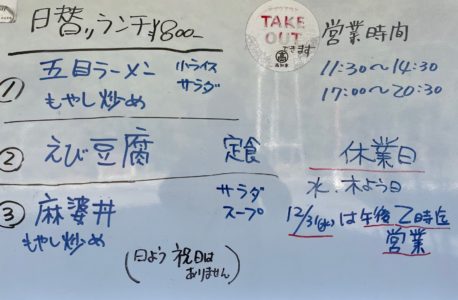 日替りランチ ¥800-
① 五目ラーメン 半ライス
もやし炒め サラダ
② えび豆腐 定食
③ 麻婆丼 サラダ
もやし炒め スープ
(日よう 祝日は
ありません)
TAKE
OUT
できます
営業時間
11:30〜14:30
17:00〜20:30
休業日
水・木よう日
12/31(火)は午後2時迄
営業